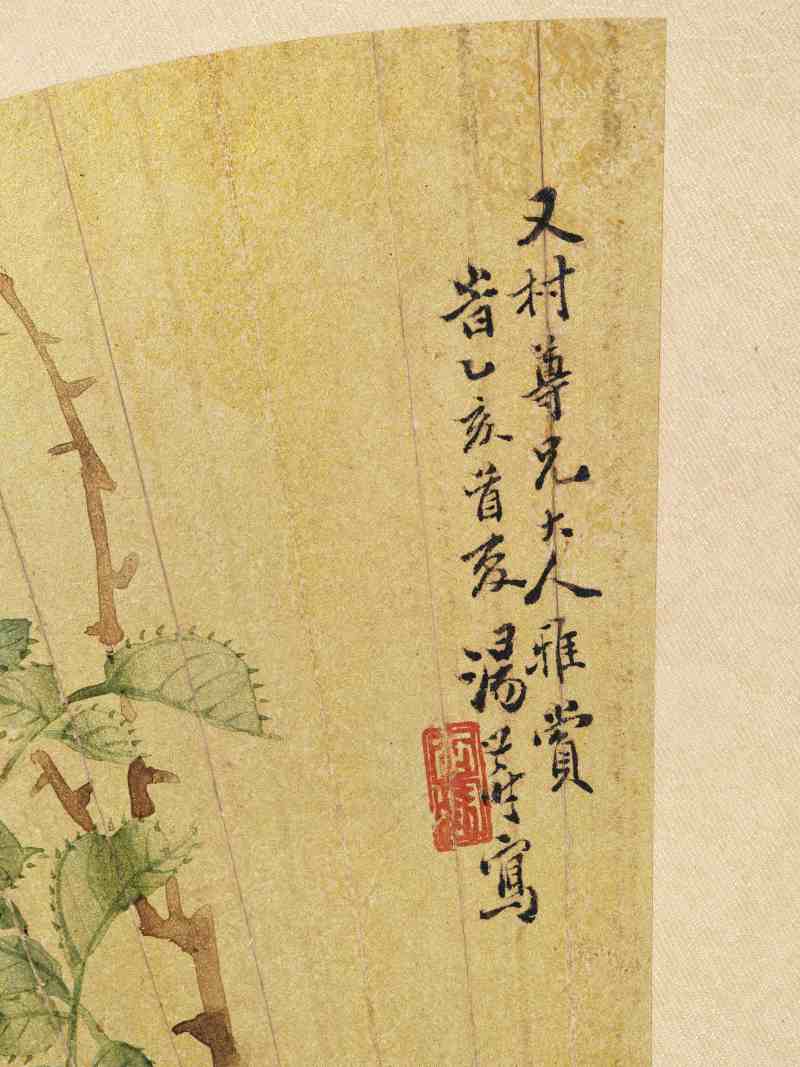 又村尊兄大人雅賞
旹乙亥首夏湯世澍寫